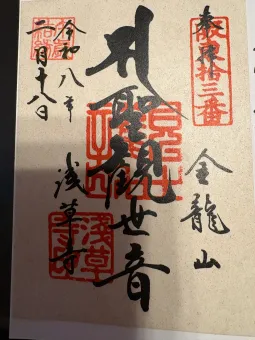 奉拝
坂東拾三番
金龍山
聖観世音
浅草寺
令和八年
二月十八日